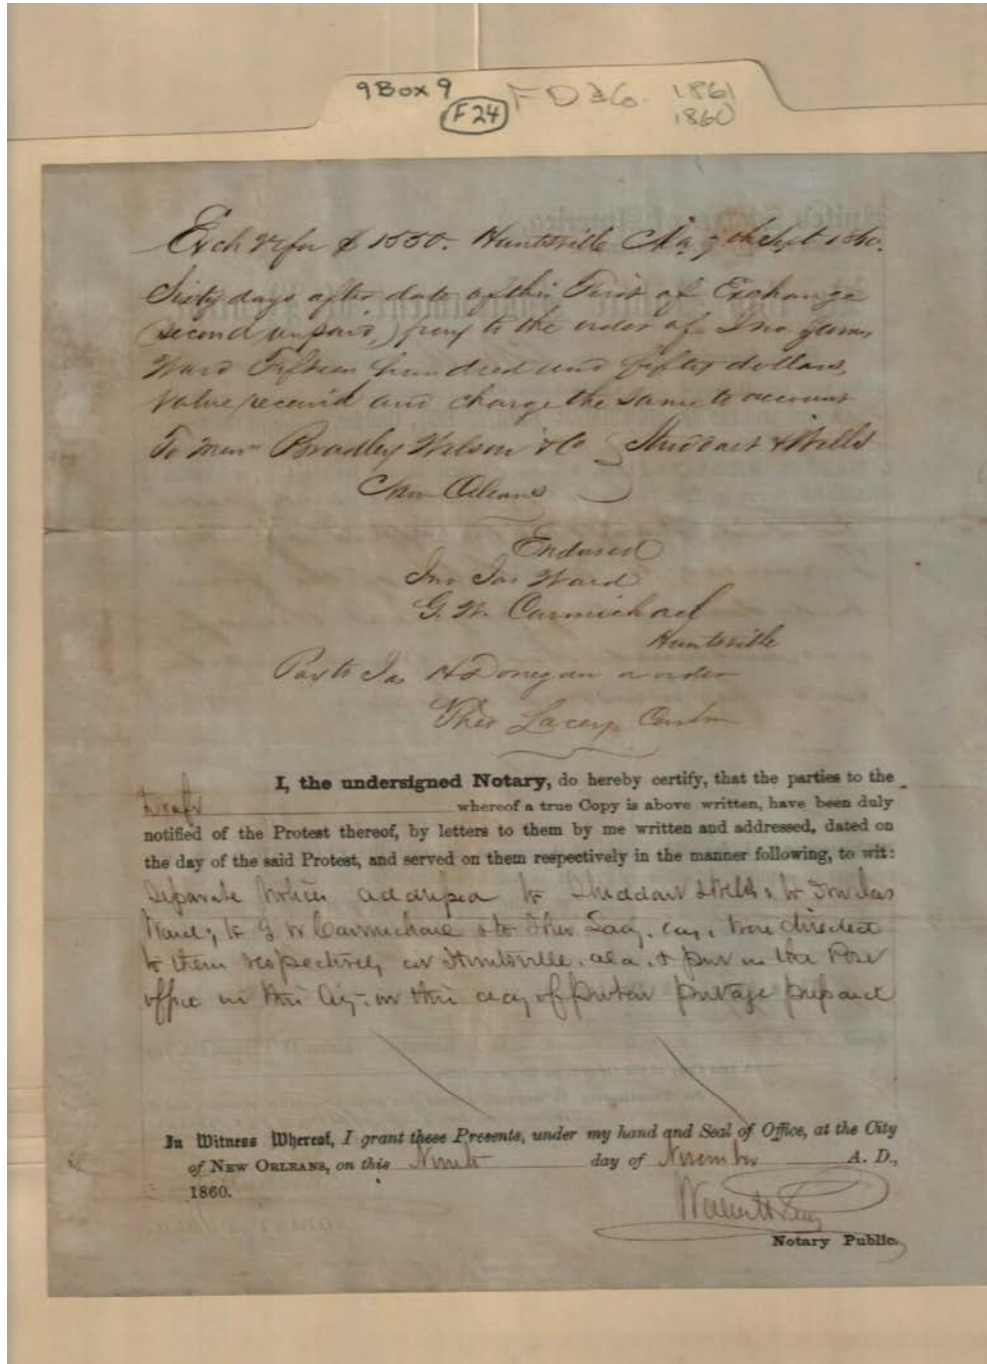 9 Box 9
F24
F D & Co. 1861
1860
Exch for $ 1550. Huntsville Ala 7th Sept 1860.
Sixty days after date of this First of Exchange
(second unpaid,) pay to the order of Jno James
Ward Fifteen hundred and fifty dollars,
value received and charge the same to account
To Messrs Bradley Wilson & Co Studdart & Wells
New Orleans
Endorsed
Jno Jas Ward
G. W. Carmichael
Huntsville
Pay to Jas H Donegan or order
Theo Lacey Cashr
I, the undersigned Notary, do hereby certify, that the parties to the
Draft whereof a true Copy is above written, have been duly
notified of the Protest thereof, by letters to them by me written and addressed, dated on
the day of the said Protest, and served on them respectively in the manner following, to wit:
Separate notices addressed to Studdart & Wells, to Jno Jas
Ward, to G W Carmichael & to Theo Lacy, were directed
to them respectively at Huntsville, ala. & put in the Post
office in this City, on this day of protest postage prepaid
In Witness Whereof, I grant these Presents, under my hand and Seal of Office, at the City
of NEW ORLEANS, on this Ninth day of November A. D.,
1860.
Notary Public.